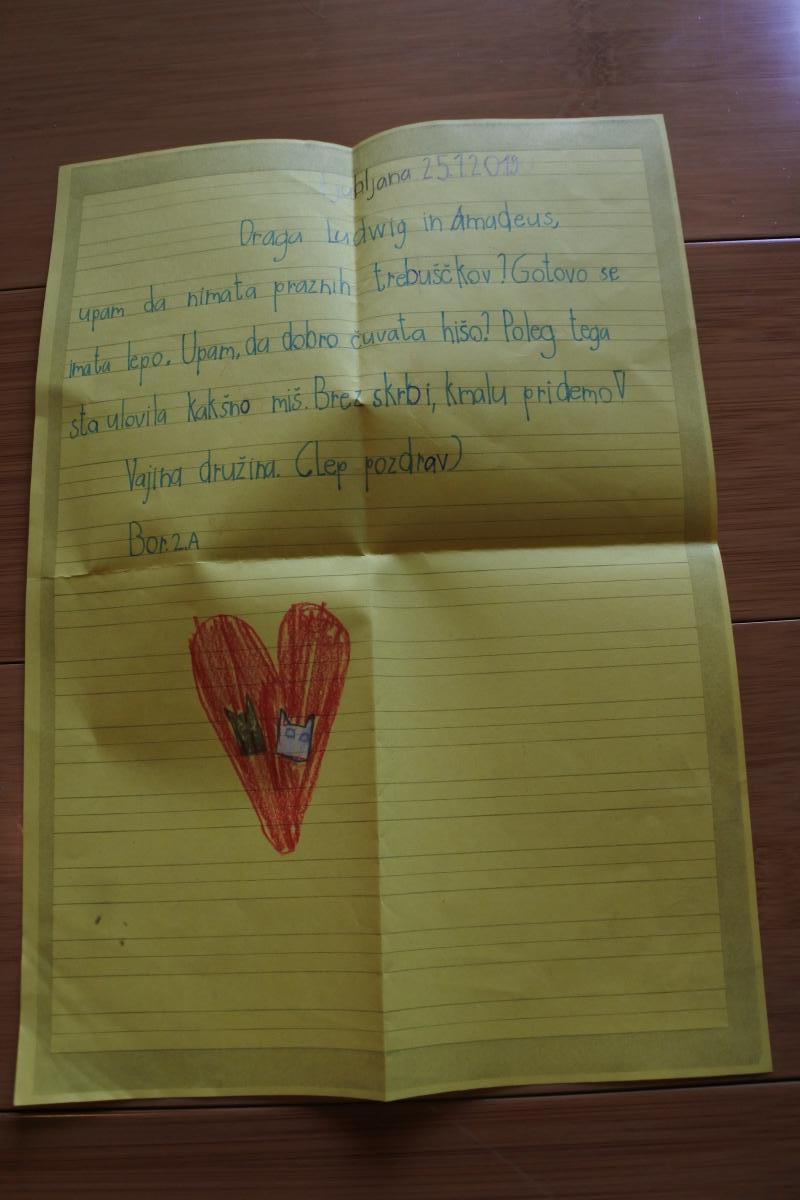 Ljubljana 25.1 2019
Draga Ludwig in Amadeus,
upam da nimata praznih trebuščkov? Gotovo se
imata lepo. Upam, da dobro čuvata hišo? Poleg tega
sta ulovila kakšno miš. Brez skrbi, kmalu pridemo!
Vajina družina. (Lep pozdrav)
Bor. 2.A